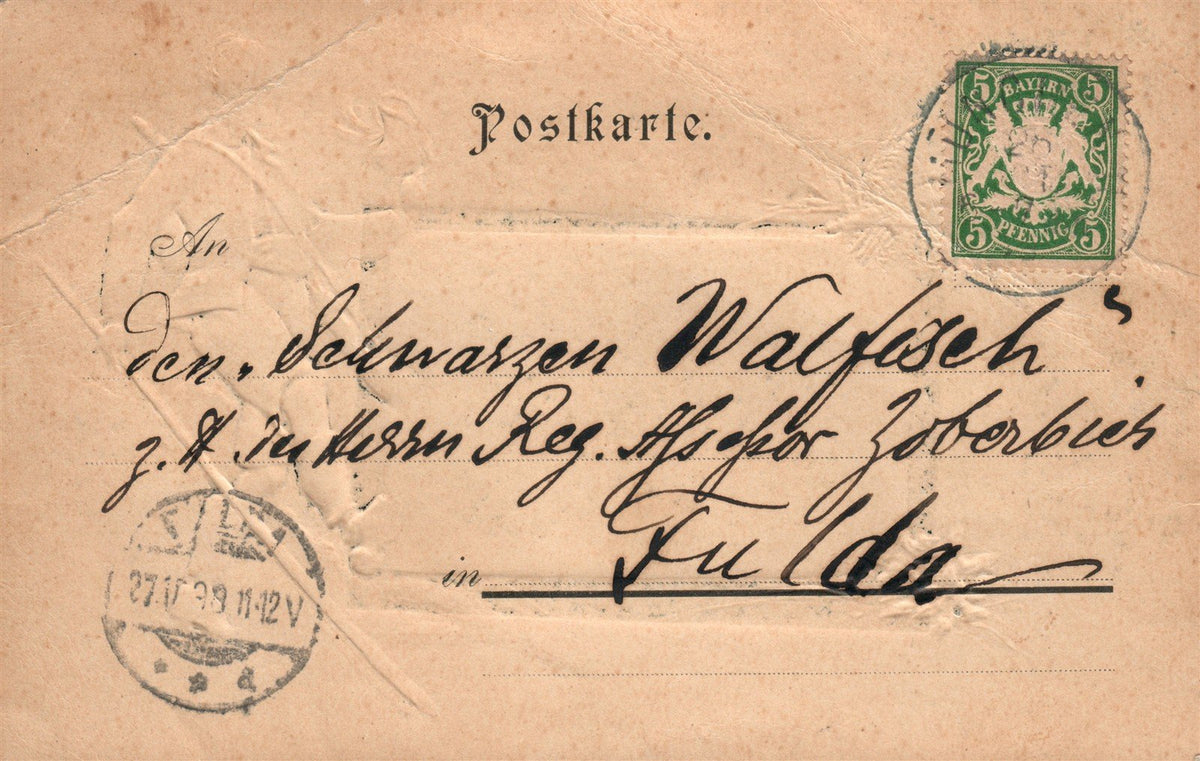 Postkarte.
5 BAYERN 5
5 PFENNIG 5
An
den „Schwarzen Walfisch“
z. H. des Herrn Reg. Assessor
in Fulda
27.10.98 11-12V
* * a